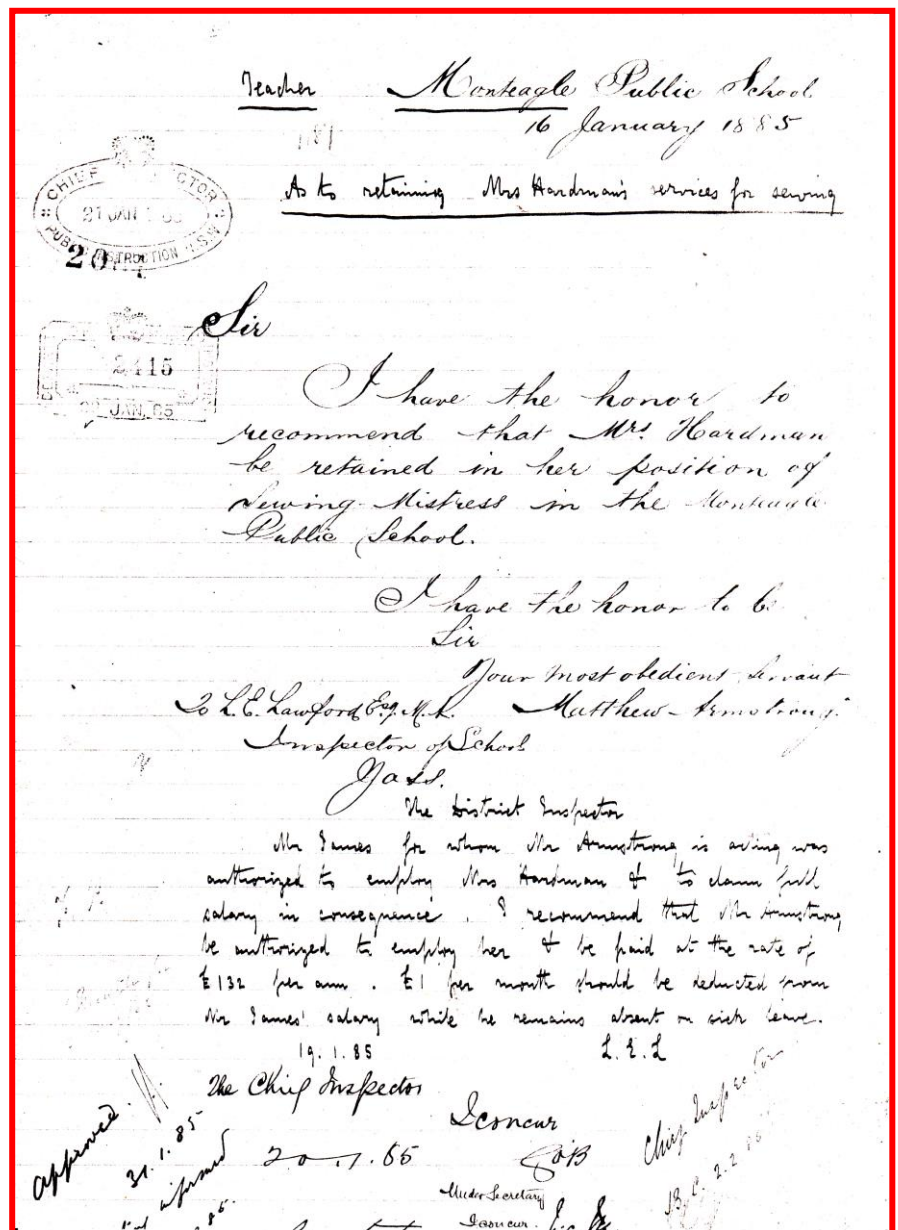 Teacher Monteagle Public School
16 January 1885
As to retaining Mrs Hardman's services for sewing
CHIEF
21 JAN
PUBLIC INSTRUCTION N.S.W
20
2415
JAN. 85
Sir
I have the honor to
recommend that Mrs. Hardman
be retained in her position of
Sewing-Mistress in the Monteagle
Public School.
I have the honor to be
Sir
Your most obedient Servant
To L.E. Lawford Esq. M.A. Matthew Armstrong
Inspector of Schools
Yass.
The District Inspector
Mr James for whom Mr Armstrong is acting was
authorized to employ Mrs Hardman & to claim full
salary in consequence. I recommend that Mr Armstrong
be authorized to employ her & be paid at the rate of
£132 per ann. £1 per month should be deducted from
Mr James' salary while he remains absent on sick leave.
19.1.85 L.E.L
The Chief Inspector
I concur
20.1.85
Approved
31.1.85
informed
Chief Inspector
B.C. 2.2.85
Under Secretary
I concur.